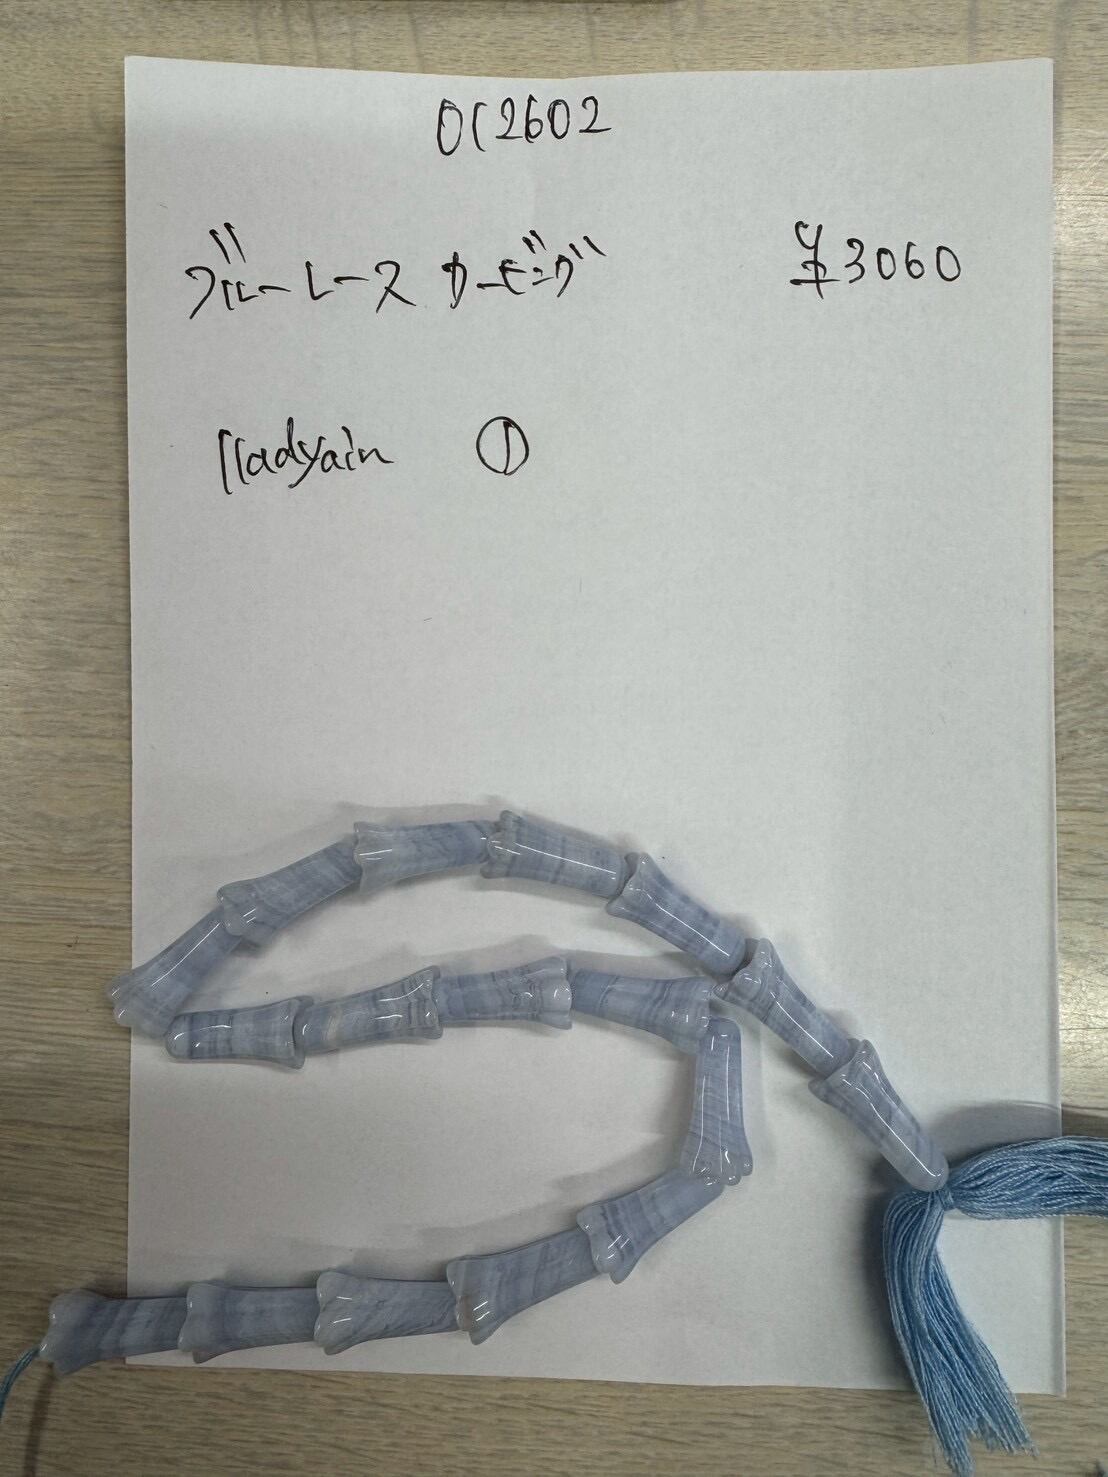 OC2602
ブルーレース カービング ¥3060
①